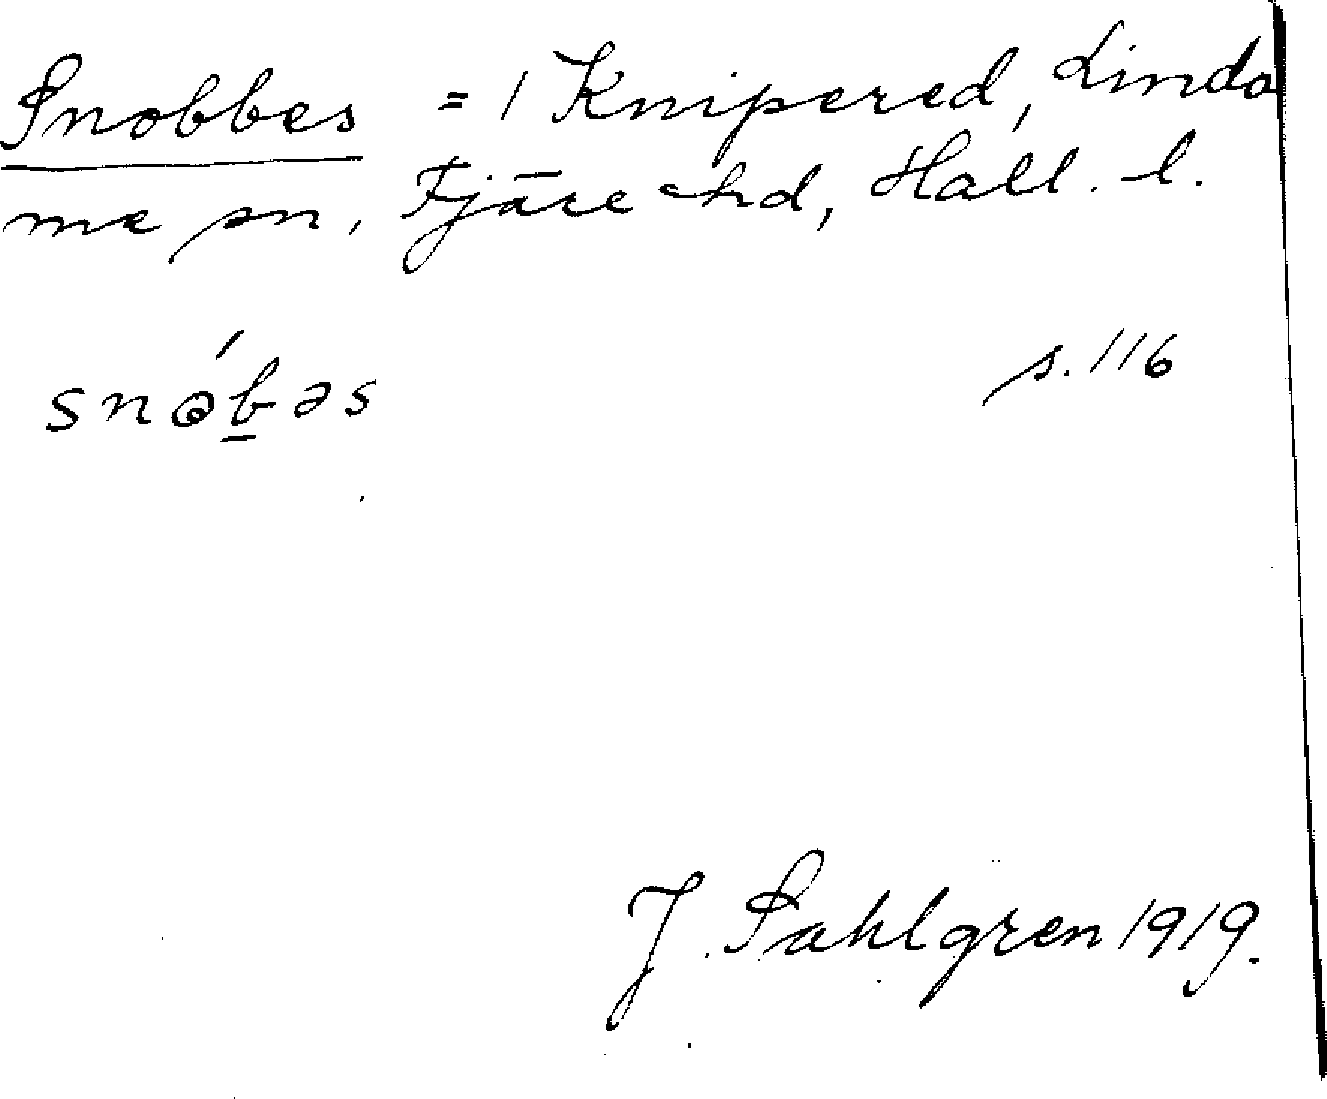 Snobbes = 1 Knipered, Lindo
me sn, Fjäre hd, Hall. l.
snɵ́b̲əs s. 116
J. Sahlgren 1919.